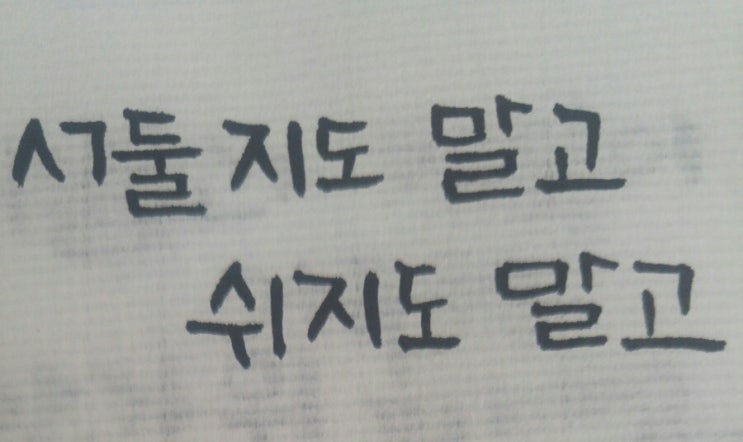 서둘지도 말고
쉬지도 말고